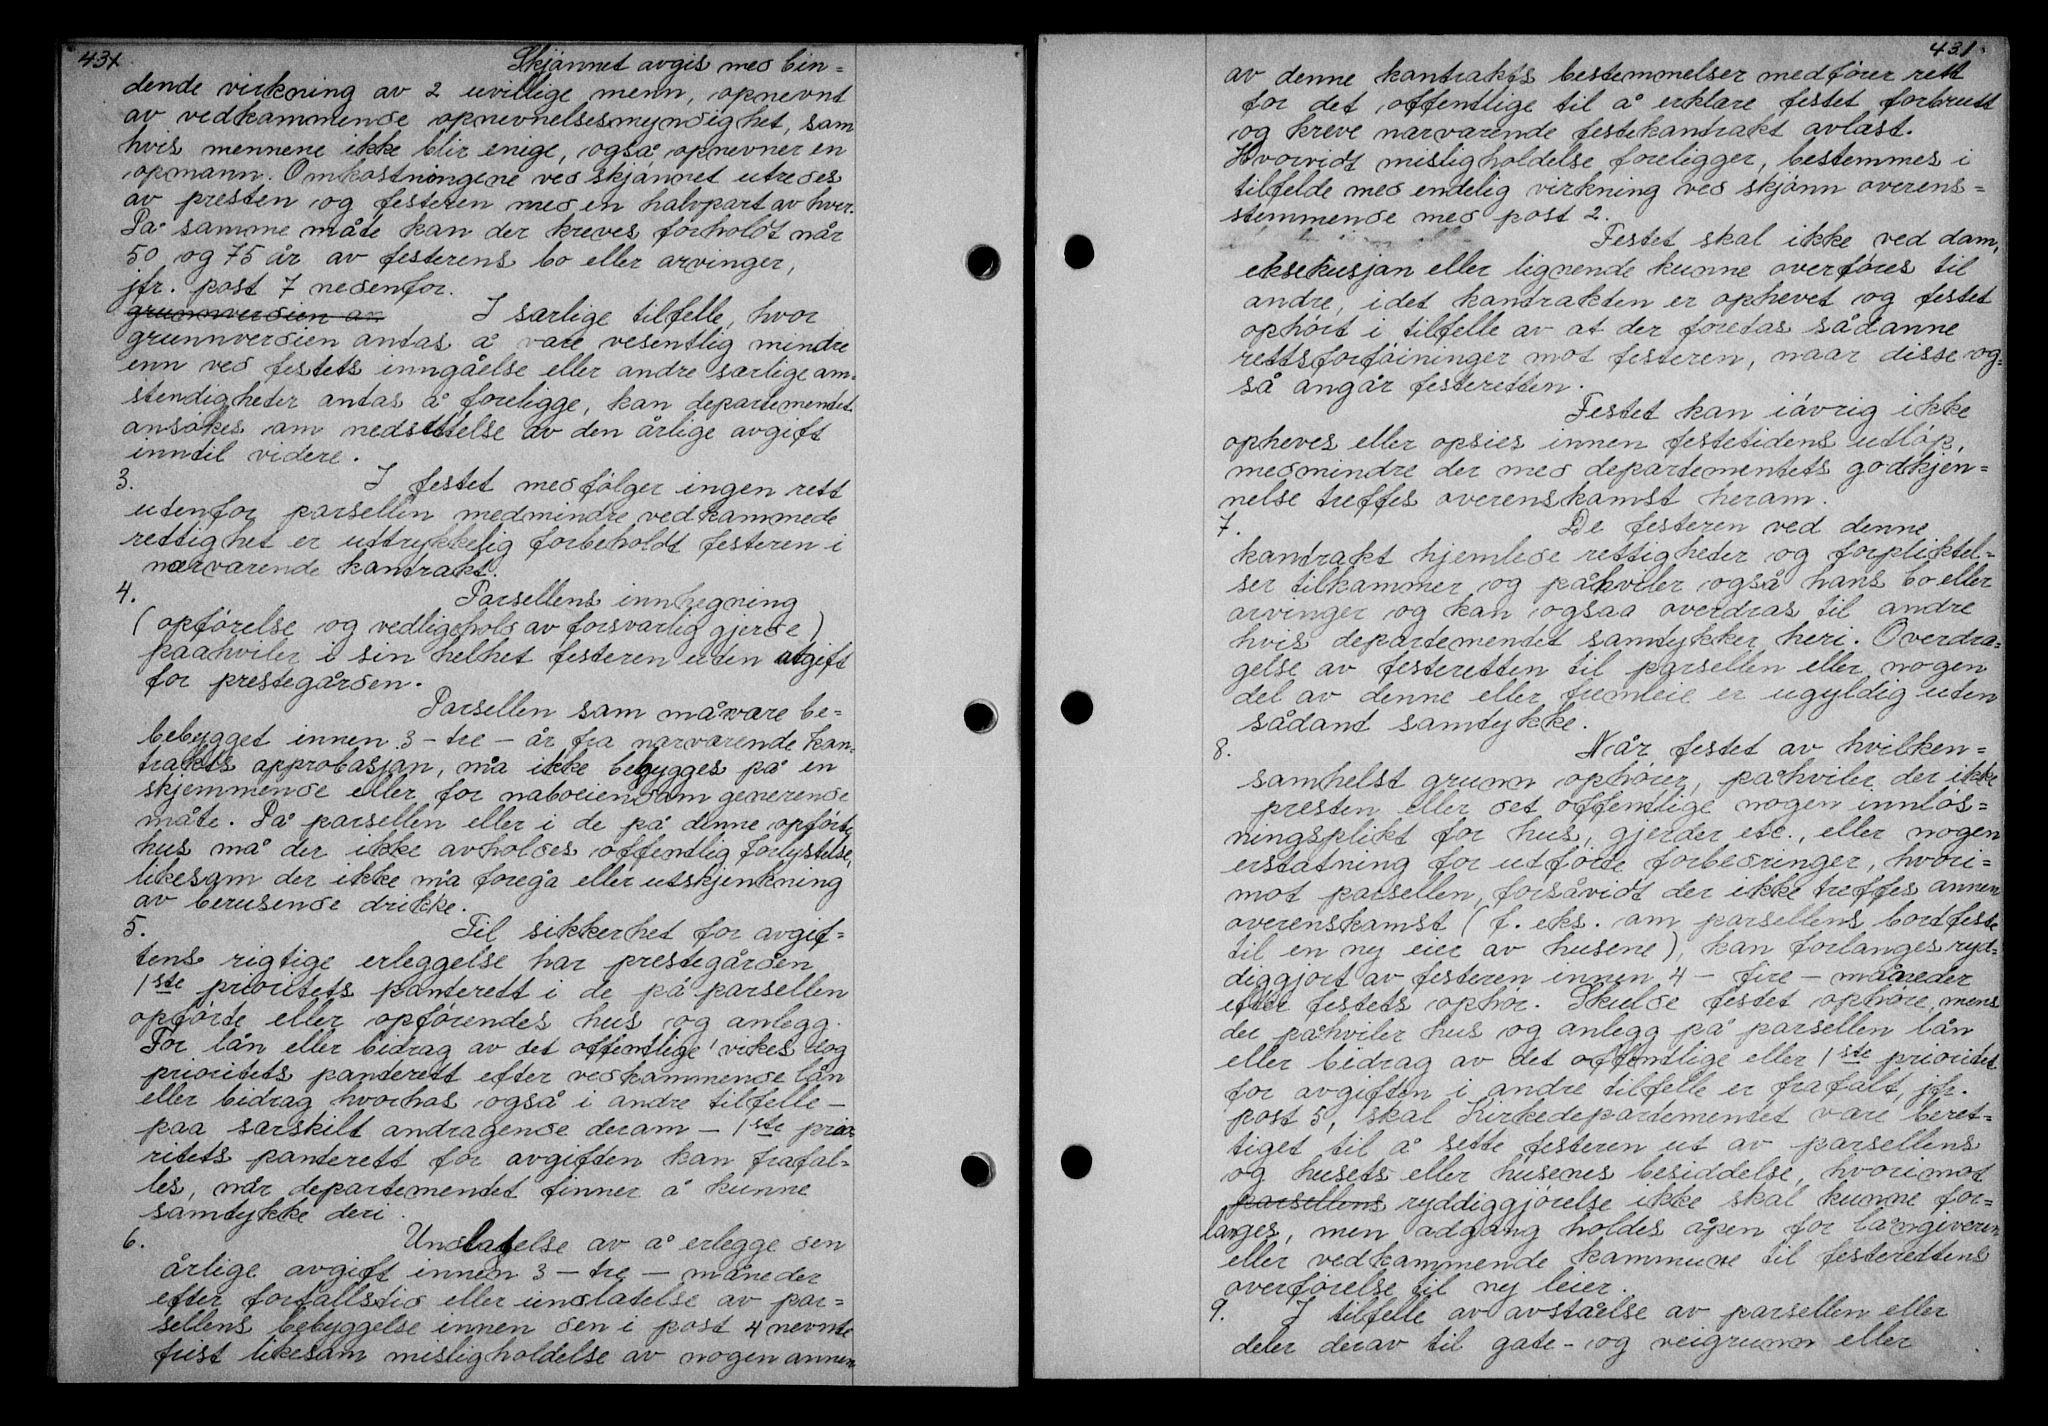 431
Skjønnet avgis med bin=
dende virkning av 2 uvillige menn, opnevnt
av vedkommende opnevnelsesmyndighet, som
hvis mennene ikke blir enige, også opnevner en
opmann. Omkostningene ved skjønnet utredes
av presten og festeren med en halvpart av hver.
På samme måte kan der kreves forholdt når
50 og 75 år av festerens bo eller arvinger,
jfr. post 7 nedenfor.
grunnverdien an I særlige tilfelle, hvor
grunnverdien antas å være vesentlig mindre
enn ved festets inngåelse eller andre særlige om=
stendigheter antas å foreligge, kan departementet
ansøkes om nedsettelse av den årlige avgift
inntil videre.
3. I festet medfølger ingen rett
utenfor parsellen medmindre vedkommede
rettighet er uttrykkelig forbeholdt festeren i
nærværende kontrakt.
4. Parsellens innhegning
(opførelse og vedligehold av forsvarlig gjerde)
paahviler i sin helhet festeren uten utgift
for prestegården.
Parsellen som må være be=
bebygget innen 3 - tre - år fra nærværende kon=
trakts approbasjon, må ikke bebygges på en
skjemmende eller for naboeiendom generende
måte. På parsellen eller i de på denne opførte
hus må der ikke avholdes offentlig forlystelse,
likesom der ikke må foregå eller utskjenkning
av berusende drikke.
5. Til sikkerhet for avgif=
tens rigtige erleggelse har prestegården
1ste prioritets panterett i de på parsellen
opførte eller opførendes hus og anlegg.
For lån eller bidrag av det offentlige virkes dog
prioritets panterett efter vedkommende lån
eller bidrag hvorhos også i andre tilfelle -
paa særskilt andragende derom - 1ste prio=
ritets panterett for avgiften kan frafal=
les, når departementet finner å kunne
samtykke deri.
6. Undlatelse av å erlegge den
årlige avgift innen 3 - tre - måneder
efter forfallstid eller undlatelse av par=
sellens bebyggelse innen den i post 4 nevnte
frist likesom misligholdelse av nogen annen
431
av denne kontrakts bestemmelser medfører rett
for det offentlige til å erklære festet forbrutt
og kreve nærværende festekontrakt avløst.
Hvorvidt misligholdelse foreligger, bestemmes i
tilfelde med endelig virkning ved skjønn overens=
stemmende med post 2.
Festet skal ikke ved dom,
eksekusjon eller lignende kunne overføres til
andre, idet kontrakten er ophevet og festet
ophørt i tilfelle av at der foretas sådanne
rettsforføininger mot festeren, naar disse og=
så angår festeretten.
Festet kan iøvrig ikke
opheves eller opsies innen festetidens utløp,
medmindre der med departementets godkjen=
nelse treffes overenskomst herom.
7. De festeren ved denne
kontrakt hjemlede rettigheter og forpliktel=
ser tilkommer og påhviler også hans bo eller
arvinger og kan ogsaa overdras til andre
hvis departementet samtykker heri. Overdra=
gelse av festeretten til parsellen eller nogen
del av denne eller fremleie er ugyldig uten
sådant samtykke.
8. Når festet av hvilken=
somhelst grunn ophører, påhviler der ikke
presten eller det offentlige nogen innløs=
ningsplikt for hus, gjerder etc., eller nogen
erstatning for utførte forbedringer, hvori=
mot parsellen, forsåvidt der ikke treffes annen
overenskomst (f. eks. om parsellens bortfeste
til en ny eier av husene), kan forlanges ryd=
diggjort av festeren innen 4 - fire - måneder
efter festets ophør. Skulde festet ophøre, mens
der påhviler hus og anlegg på parsellen lån
eller bidrag av det offentlige eller 1ste prioritet
for avgiften i andre tilfelle er frafalt, jfr.
post 5, skal Kirkedepartementet være beret=
tiget til å sette festeren ut av parsellens
og husets eller husenes besiddelse, hvorimot
parsellens ryddiggjørelse ikke skal kunne for=
langes, men adgang holdes åpen for långiveren
eller vedkommende kommune til festerettens
overførelse til ny leier.
9. I tilfelle av avståelse av parsellen eller
deler derav til gate- og veigrunn eller